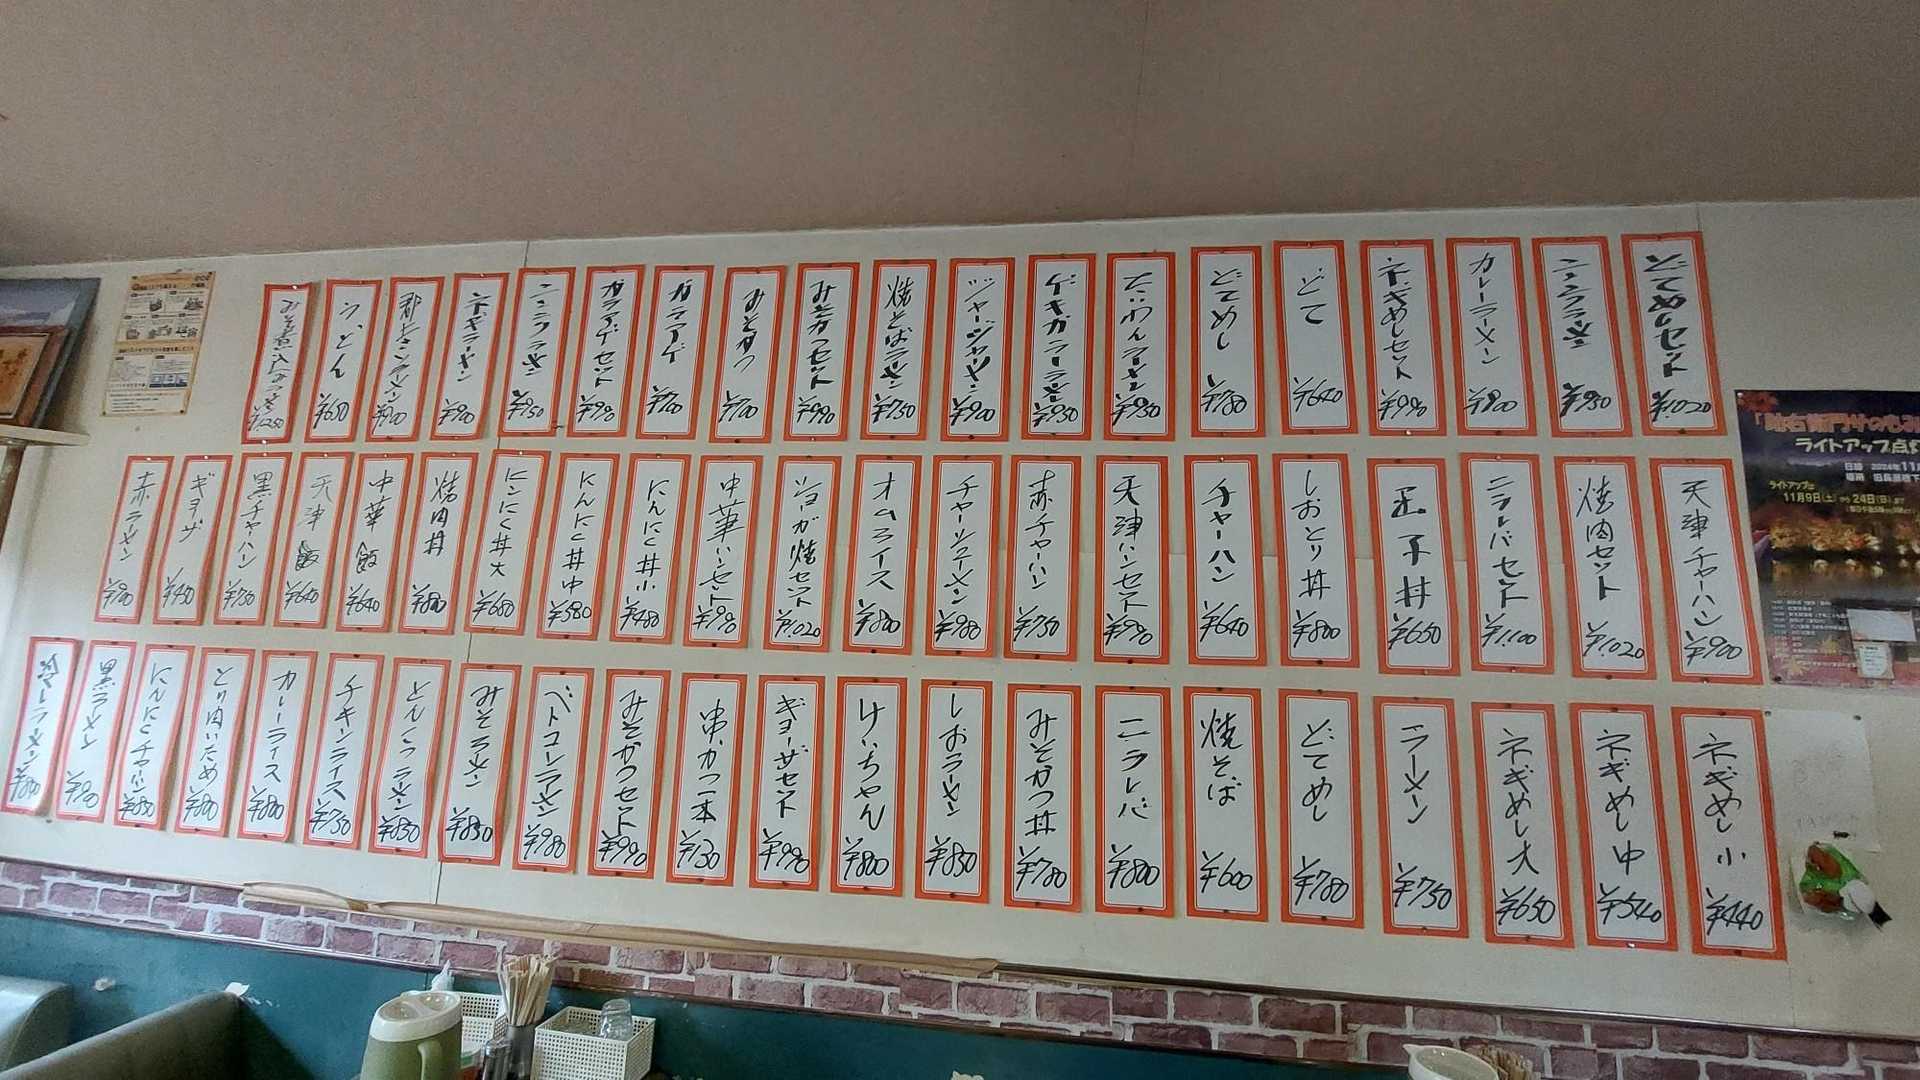 どてめしセット ¥1,020
ニンニクラーメン ¥950
カレーラーメン ¥900
ネギめしセット ¥990
どて ¥640
どてめし ¥780
たいわんラーメン ¥950
ゲキカララーメン ¥950
ジャージャーメン ¥900
焼そばラーメン ¥750
みそかつセット ¥990
みそかつ ¥700
カラアゲ ¥700
カラアゲセット ¥990
ネギラーメン ¥900
うどん ¥650
天津チャーハン ¥900
焼肉セット ¥1,020
ニラレバセット ¥1,100
玉子丼 ¥650
しおとり丼 ¥800
チャーハン ¥640
天津ハンセット ¥990
赤チャーハン ¥750
チャーシューメン ¥980
オムライス ¥800
ショーガ焼セット ¥1,020
中華ハンセット ¥990
にんにく丼小 ¥480
にんにく丼中 ¥580
にんにく丼大 ¥680
焼肉丼 ¥800
中華飯 ¥640
天津飯 ¥640
黒チャーハン ¥750
ギョーザ ¥450
赤ラーメン
ネギめし小 ¥440
ネギめし中 ¥540
ネギめし大 ¥650
ラーメン ¥750
どてめし ¥780
焼そば ¥600
ニラレバ ¥800
みそかつ丼 ¥780
しおラーメン ¥850
けいちゃん ¥800
ギョーザセット ¥990
串かつ一本 ¥130
みそかつセット ¥990
ベトコンラーメン ¥980
みそラーメン ¥850
とんこつラーメン ¥850
チキンライス ¥750
カレーライス ¥800
とり肉いため ¥800
にんにくチャーハン ¥850
黒ラーメン ¥900
冷しラーメン
ライトアップ点灯
11月9日(土)から24日(日)